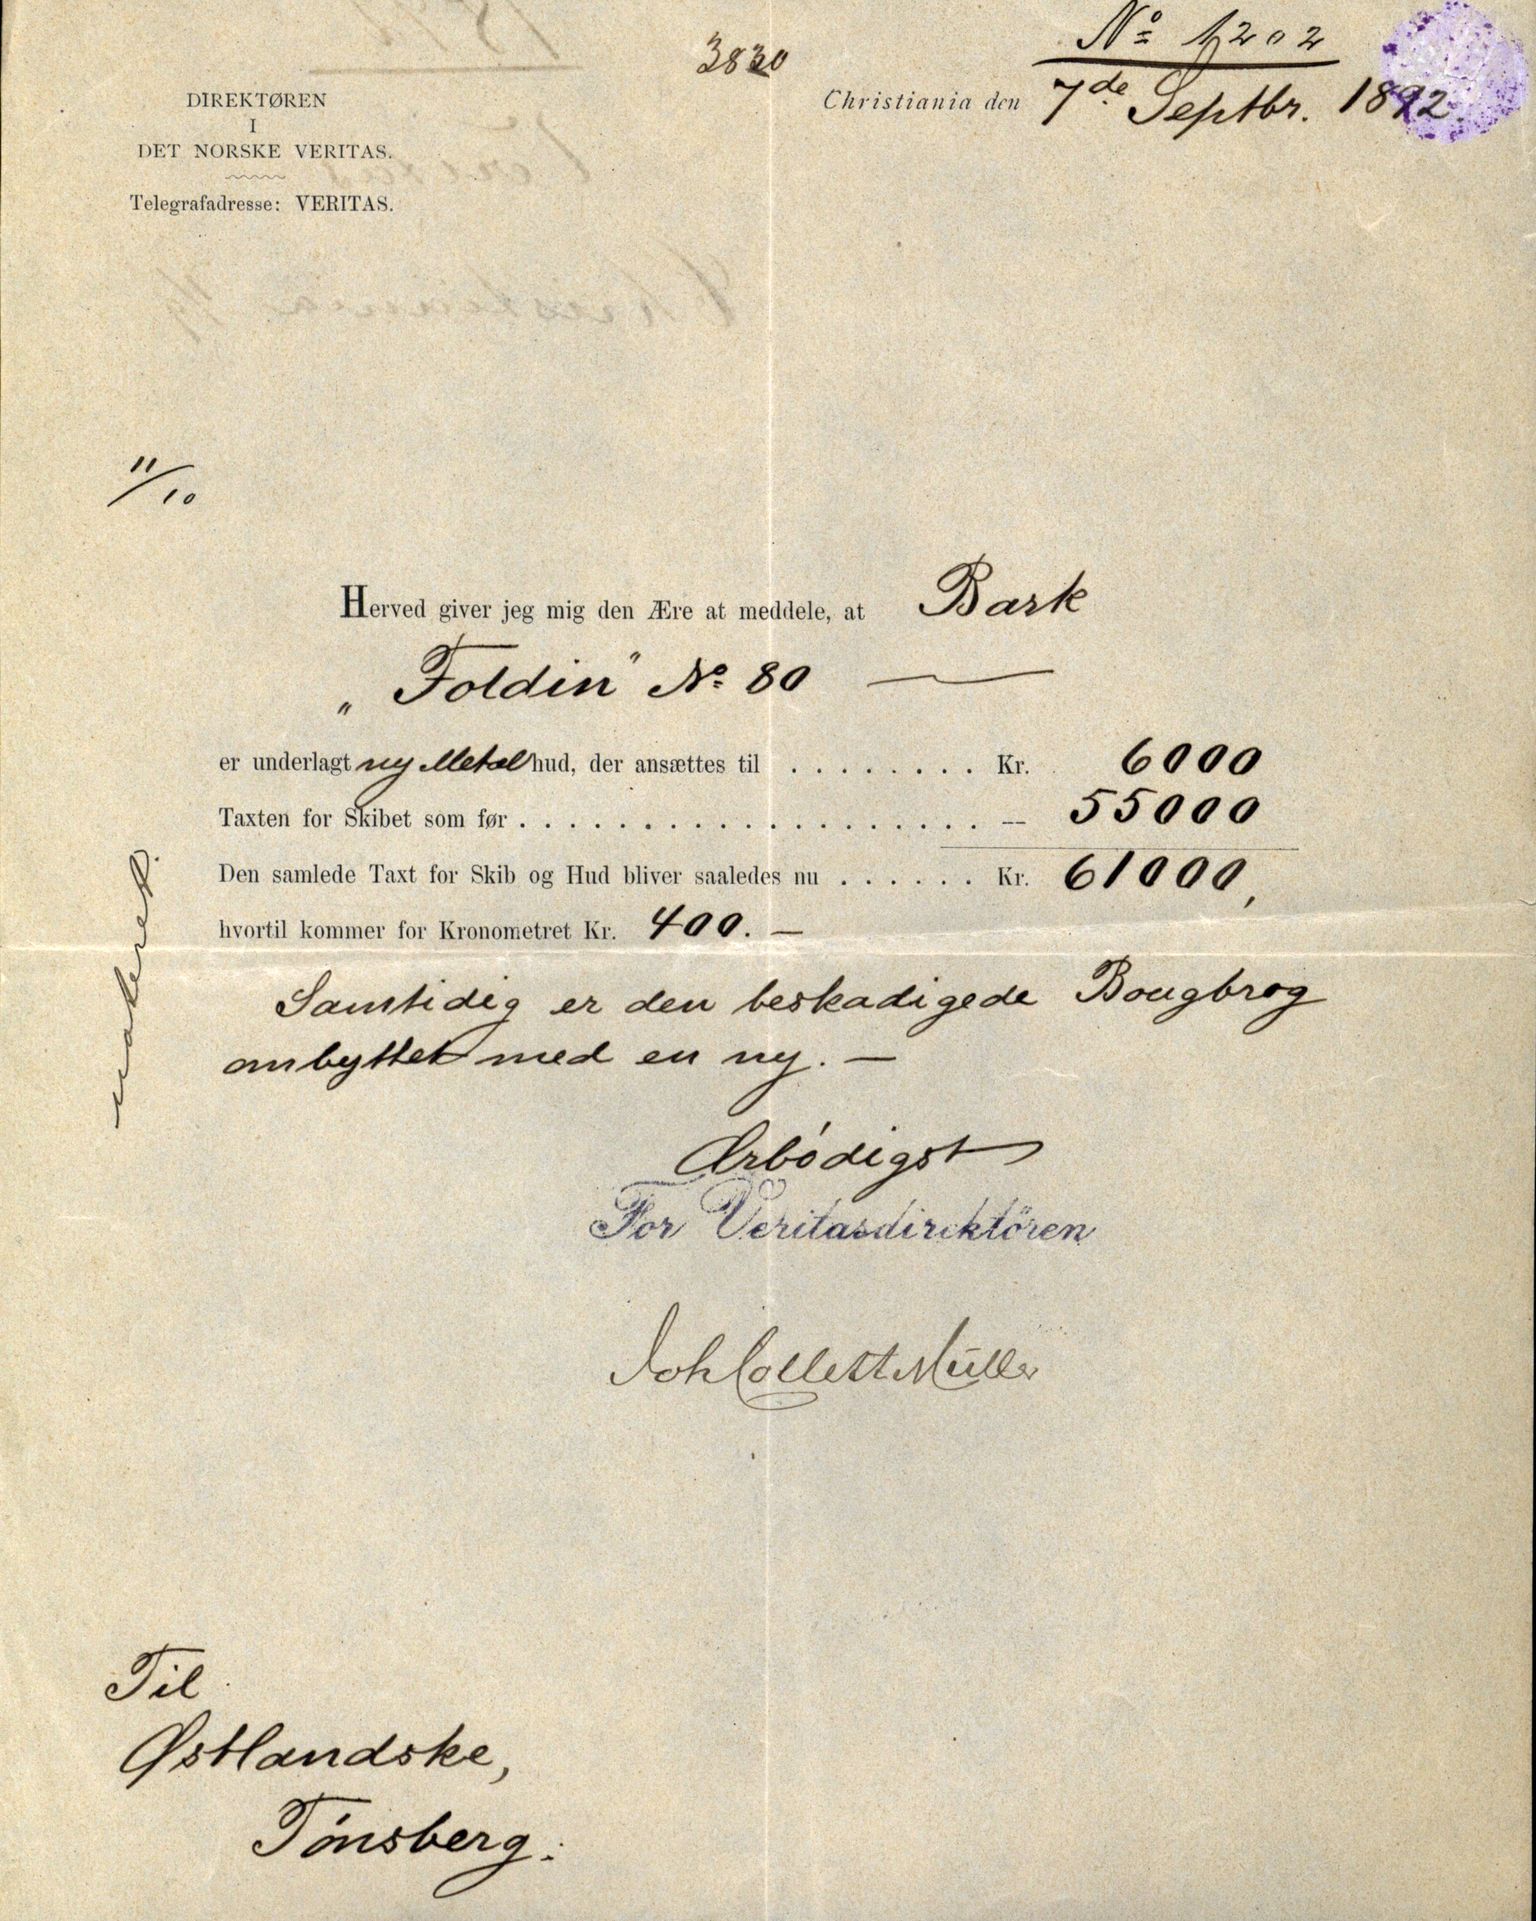 3830
Nº 1202
DIREKTØREN
I
DET NORSKE VERITAS.
Telegrafadresse: VERITAS.
Christiania den 7de Septbr. 1892.
11/10
Herved giver jeg mig den Ære at meddele, at Bark
„Foldin" Nº 80
er underlagt ny Metalhud, der ansættes til ........ Kr. 6000
Taxten for Skibet som før ................... — 55000
Den samlede Taxt for Skib og Hud bliver saaledes nu ...... Kr. 61000,
hvortil kommer for Kronometret Kr. 400.—
Samtidig er den beskadigede Bougbrog
ombyttet med en ny.—
noteret.
Ærbödigst
For Veritasdirektören
Joh Collett Müller
Til
Østlandske,
Tönsberg.